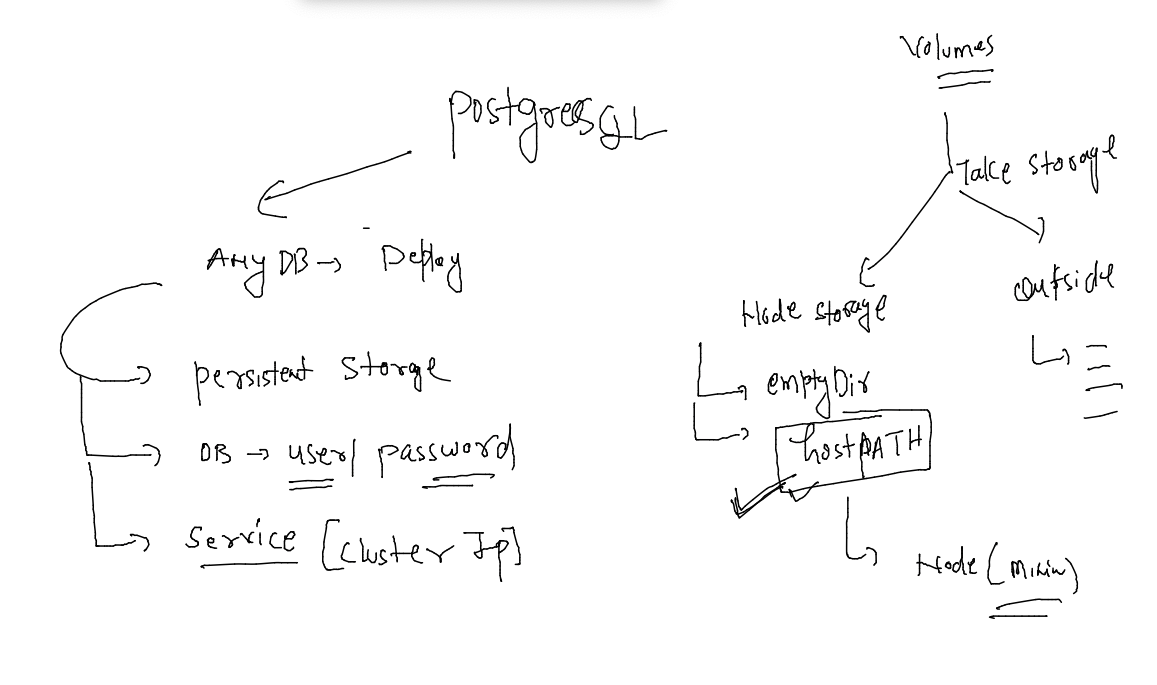 PostgresSQL
Any DB → Deploy
Persistent Storage
DB → user/ password
Service [Cluster Ip]
Volumes
Take Storage
Node storage
outside
emptyDir
hostPATH
Node (Minion)